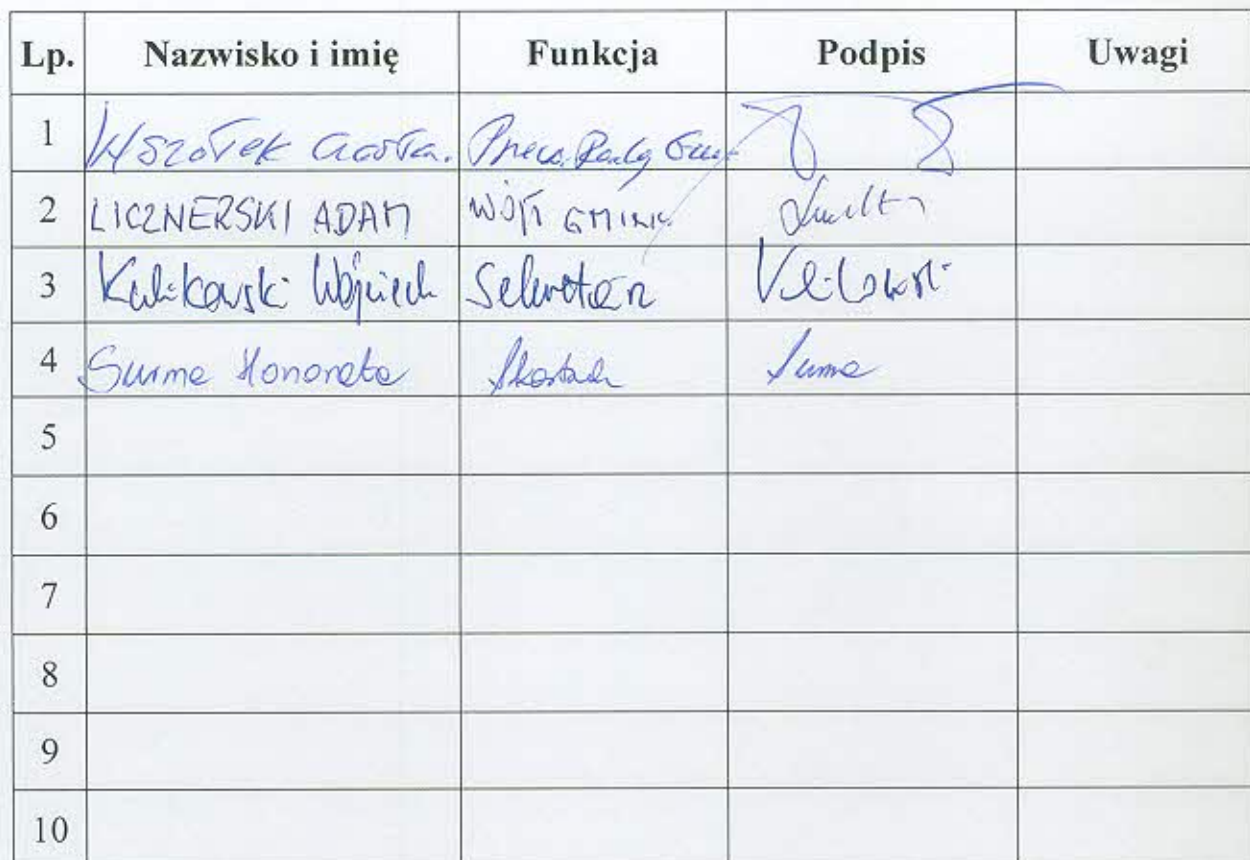 Lp. Nazwisko i imię Funkcja Podpis Uwagi
1 Wszołek
2 LICZNERSKI ADAM WÓJT GMINY
3 Kulikowski Wojciech Sekretarz
4 Surma Honorata Skarbnik Surma
5
6
7
8
9
10